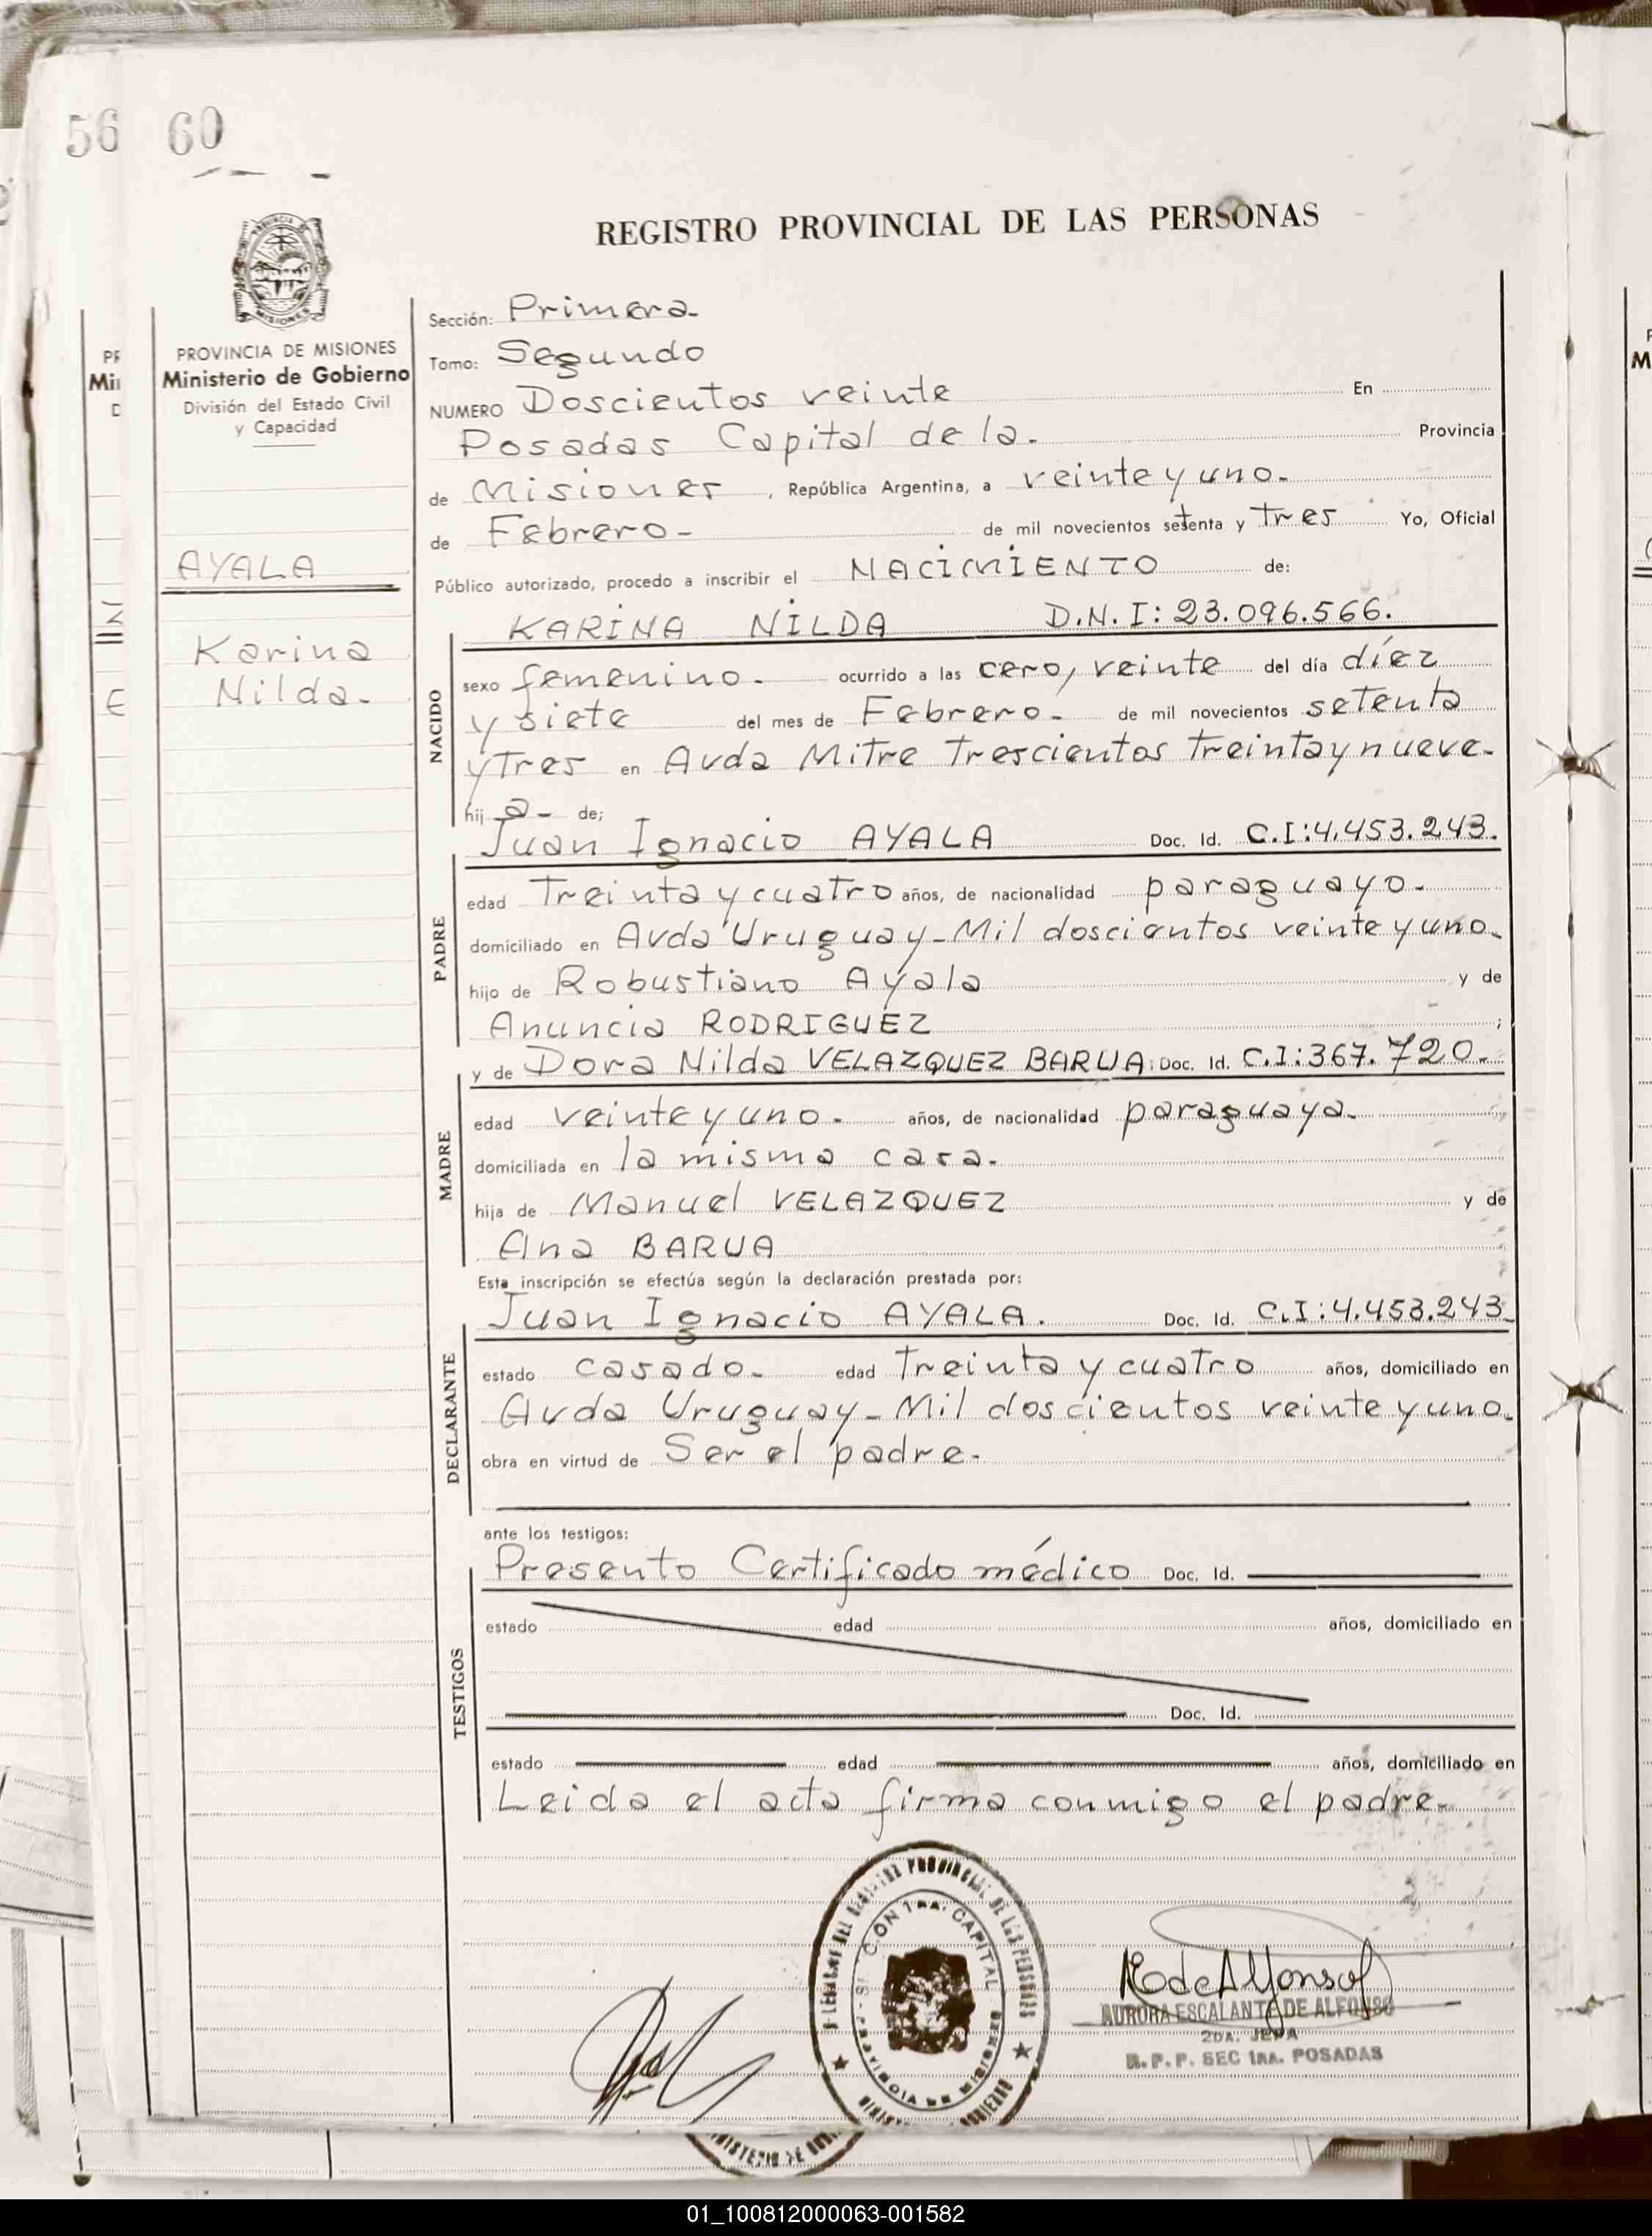 56 60
REGISTRO PROVINCIAL DE LAS PERSONAS
PROVINCIA DE MISIONES
Ministerio de Gobierno
División del Estado Civil
y Capacidad
AYALA
Karina
Nilda.
Sección: Primera.
Tomo: Segundo
NUMERO Doscientos veinte En
Posadas Capital de la. Provincia
de Misiones, República Argentina, a veinte y uno.
de Febrero. de mil novecientos setenta y tres Yo, Oficial
Público autorizado, procedo a inscribir el NACIMIENTO de:
KARINA NILDA D.N.I: 23.096.566.
NACIDO
sexo femenino. ocurrido a las cero, veinte del día díez
y siete del mes de Febrero. de mil novecientos setenta
y Tres en Avda Mitre Trescientos treinta y nueve.
hij a de;
Juan Ignacio AYALA Doc. Id. C.I:4.453.243.
PADRE
edad Treinta y cuatro años, de nacionalidad paraguayo.
domiciliado en Avda Uruguay-Mil doscientos veinte y uno.
hijo de Robustiano Ayala y de
Anuncia RODRIGUEZ ;
y de Dora Nilda VELAZQUEZ BARUA. Doc. Id. C.I:367.720.
MADRE
edad veinte y uno. años, de nacionalidad paraguaya.
domiciliada en la misma casa.
hija de Manuel VELAZQUEZ y de
Ana BARUA
Esta inscripción se efectúa según la declaración prestada por:
Juan Ignacio AYALA. Doc. Id. C.I:4.453.243.
DECLARANTE
estado casado. edad Treinta y cuatro años, domiciliado en
Avda Uruguay-Mil doscientos veinte y uno.
obra en virtud de Ser el padre.
ante los testigos:
Presento Certificado médico Doc. Id.
TESTIGOS
estado edad años, domiciliado en
Doc. Id.
estado edad años, domiciliado en
Leida el acta firma conmigo el padre.
SECCION 1RA. CAPITAL
PROVINCIA DE MISIONES
AEdeAlfonso
AURORA ESCALANTE DE ALFONSO
2DA. JEFA
R. P. P. SEC 1RA. POSADAS
01_100812000063-001582